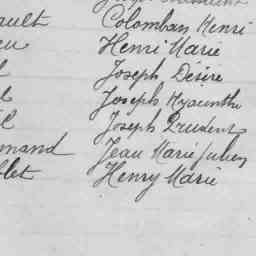 ault Colomban Henri
eu Henri Marie
Joseph Désiré
Joseph Hyacinthe
Joseph Prudent
mand Jean Marie Julien
llet Henry Marie